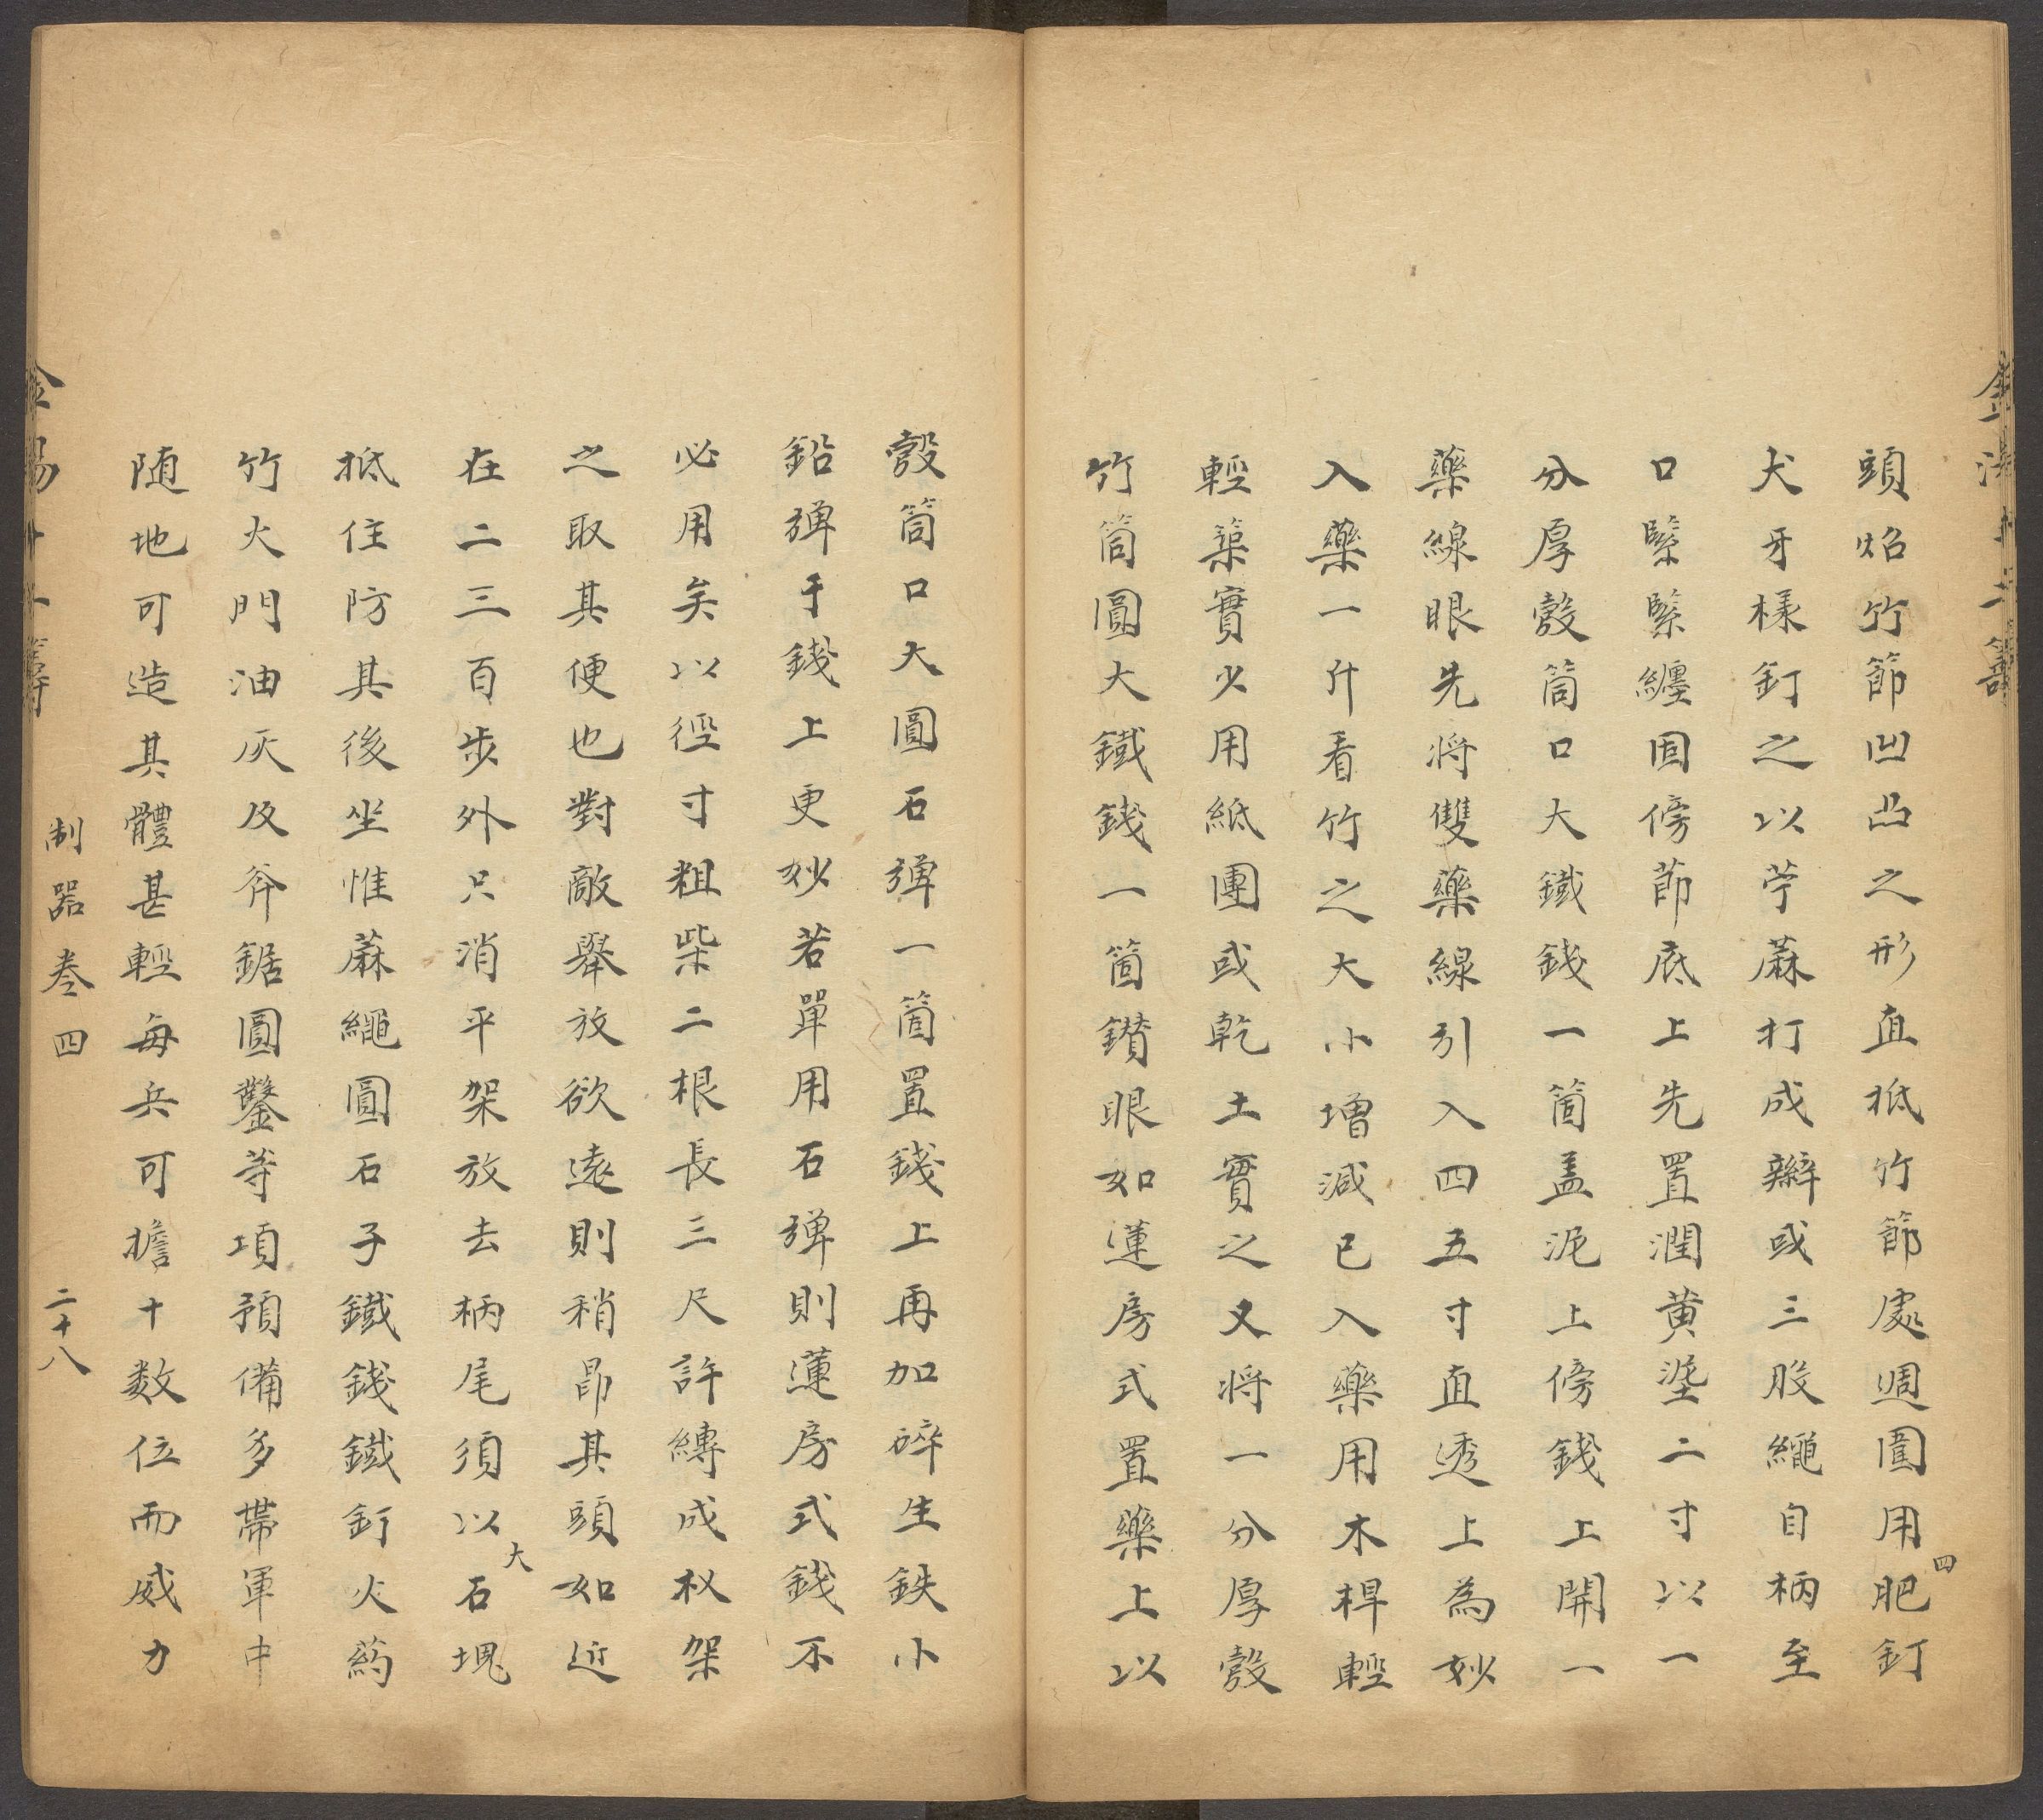 頭焰竹節凹凸之形直抵竹節處週圍用四肥釘
犬牙樣釘之以苧蔴打成辮或三股繩自柄至
口緊緊纏固傍節底上先置潤黃埿二寸以一
分厚彀筒口大鐵錢一箇盖泥上傍錢上開一
藥線眼先将雙藥線引入四五寸直透上為妙
入藥一升看竹之大小增減已入藥用木桿輕
輕築實少用紙團或乾土實之又将一分厚彀
竹筒圓大鐵錢一箇鑚眼如蓮房式置藥上以
彀筒口大圓石弾一箇置錢上再加碎生鉄小
鉛弾于錢上更妙若單用石弾則蓮房式錢不
必用矣以徑寸粗柴二根長三尺許縳成杈架
之取其便也對敵舉放欲遠則稍昂其頭如近
在二三百步外只消平架放去柄尾須以大石塊
抵住防其後坐惟蔴繩圓石子鐵錢鐵釘火葯
竹火門油灰及斧鋸圓鑿等項預備多帶軍中
随地可造其體甚輕每兵可擔十数位而威力
制器卷四
二十八